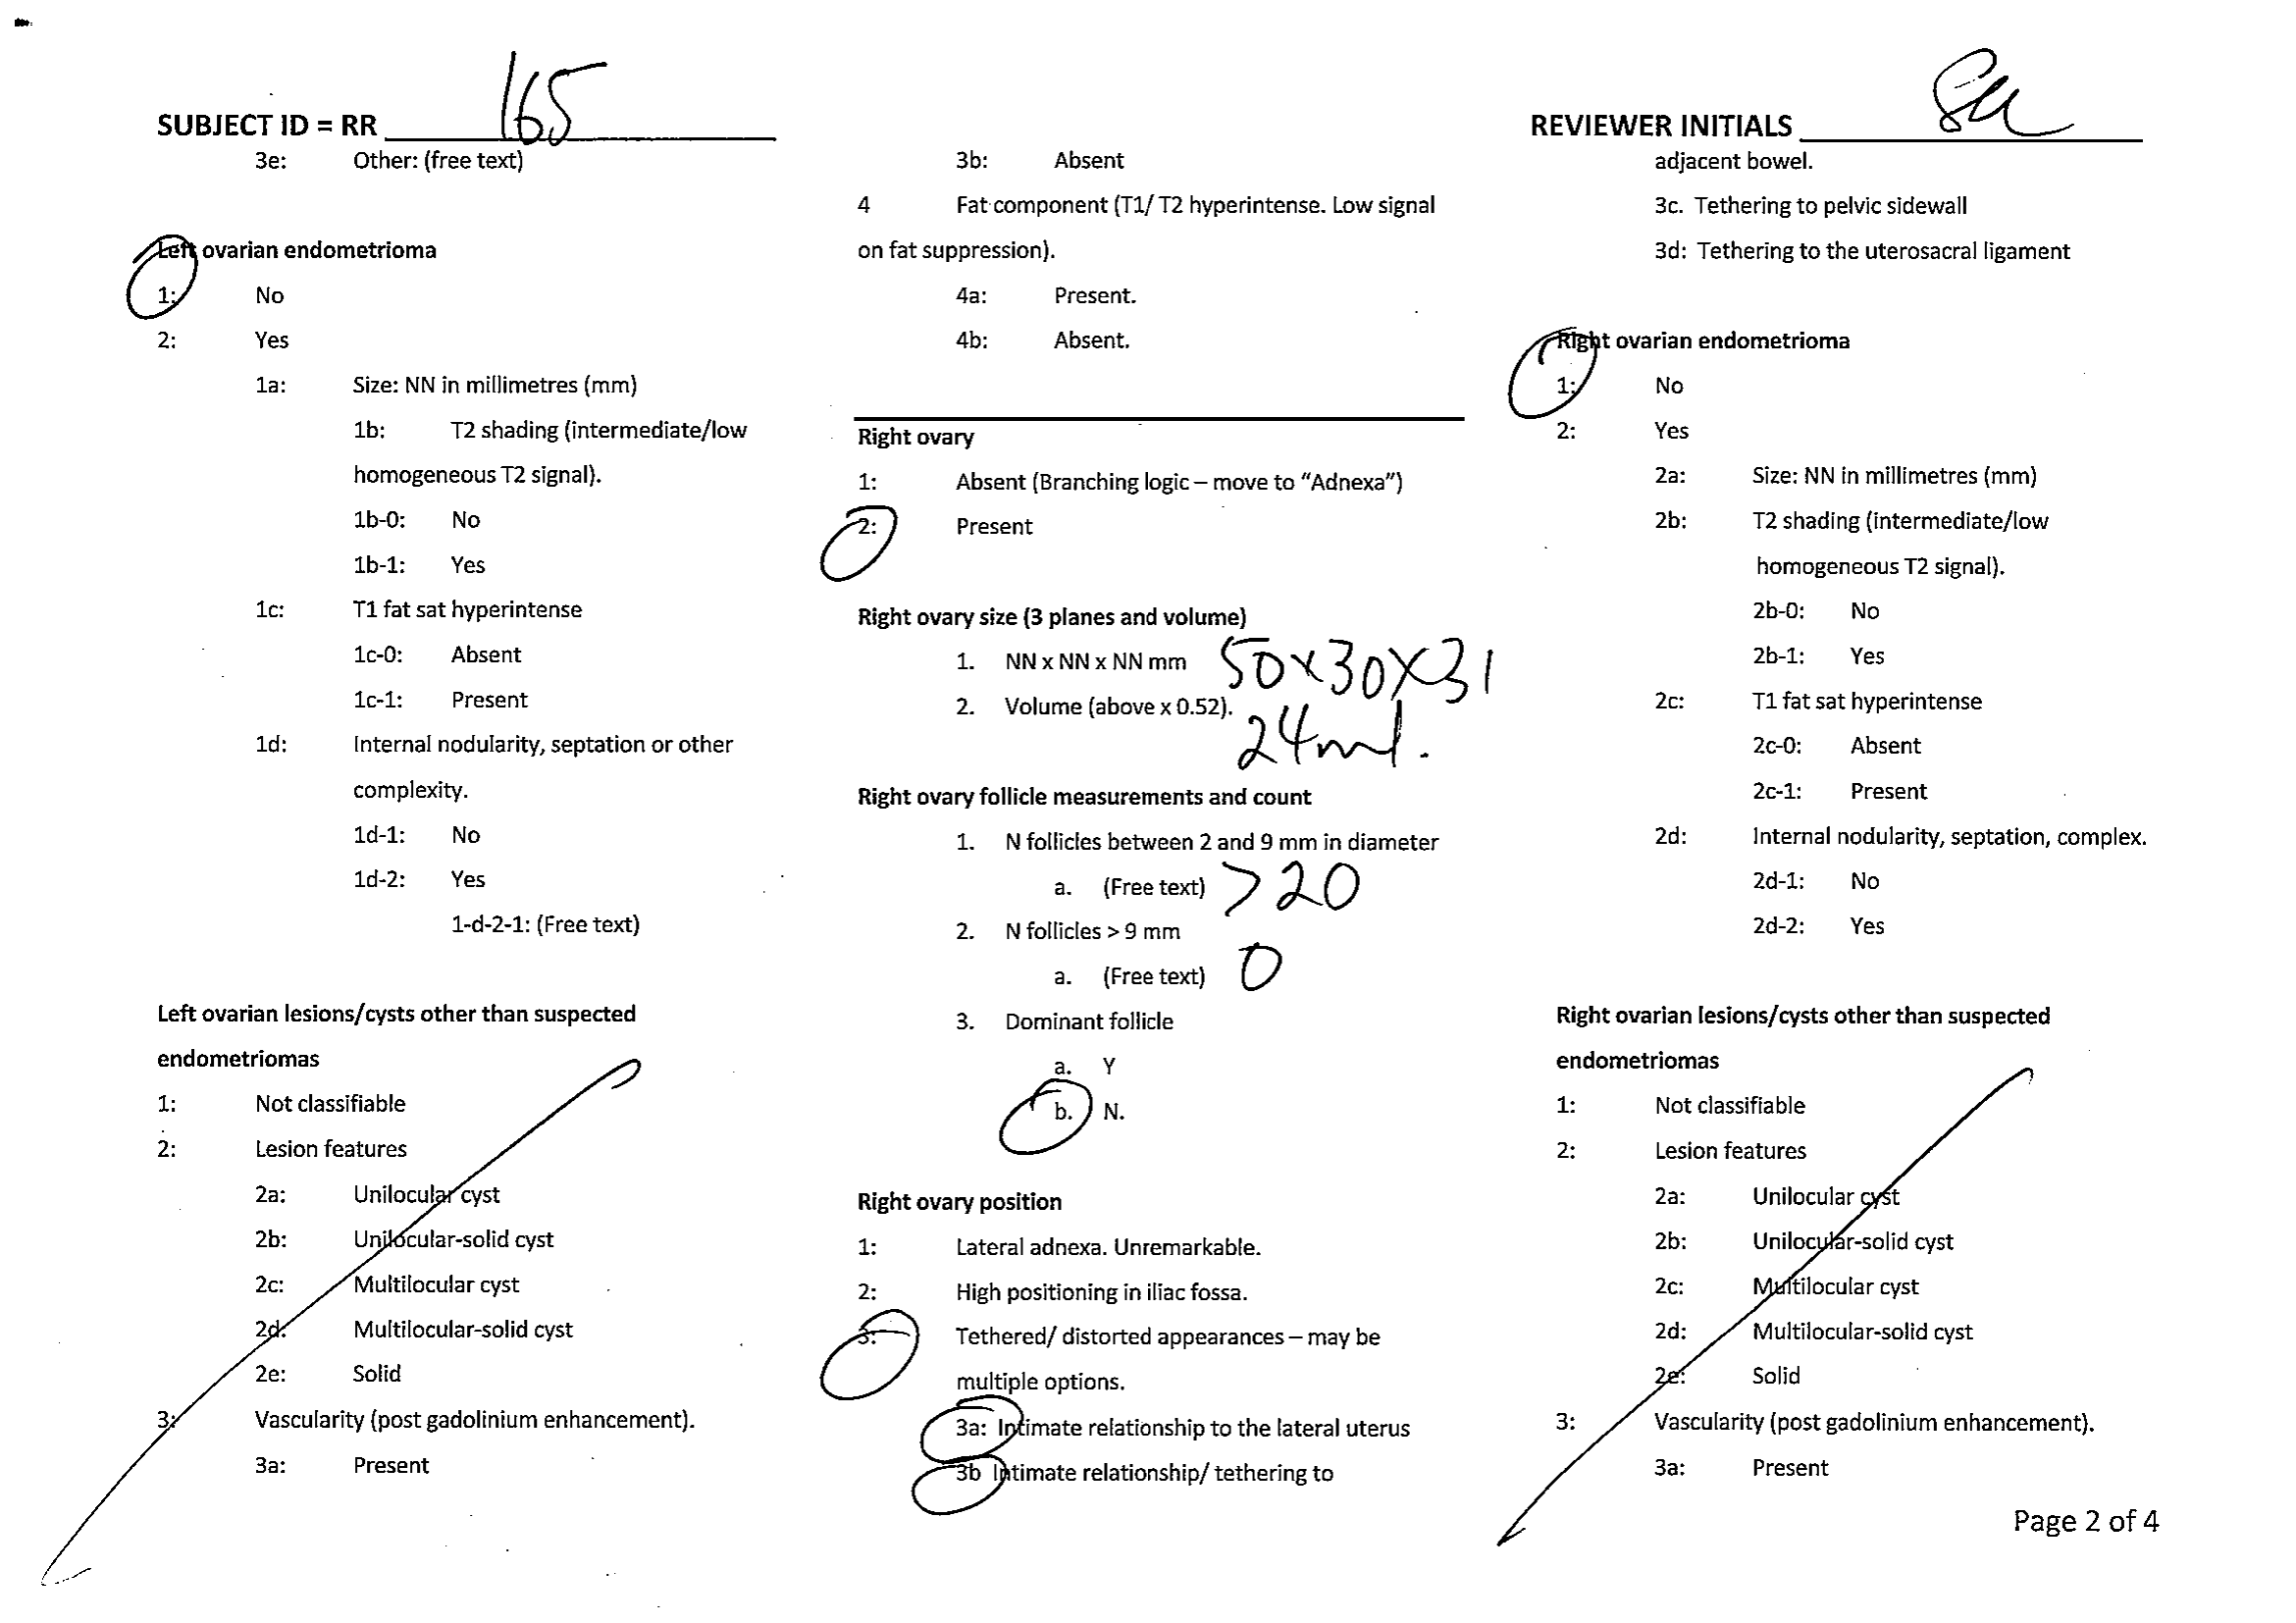 SUBJECT ID = RR 165
3e: Other: (free text)
Left ovarian endometrioma
1: No
2: Yes
1a: Size: NN in millimetres (mm)
1b: T2 shading (intermediate/low
homogeneous T2 signal).
1b-0: No
1b-1: Yes
1c: T1 fat sat hyperintense
1c-0: Absent
1c-1: Present
1d: Internal nodularity, septation or other
complexity.
1d-1: No
1d-2: Yes
1-d-2-1: (Free text)
Left ovarian lesions/cysts other than suspected
endometriomas
1: Not classifiable
2: Lesion features
2a: Unilocular cyst
2b: Unilocular-solid cyst
2c: Multilocular cyst
2d: Multilocular-solid cyst
2e: Solid
3: Vascularity (post gadolinium enhancement).
3a: Present
3b: Absent
4 Fat component (T1/ T2 hyperintense. Low signal
on fat suppression).
4a: Present.
4b: Absent.
Right ovary
1: Absent (Branching logic – move to “Adnexa”)
2: Present
Right ovary size (3 planes and volume)
1. NN x NN x NN mm 50x30x31
2. Volume (above x 0.52).
24ml.
Right ovary follicle measurements and count
1. N follicles between 2 and 9 mm in diameter
a. (Free text) >20
2. N follicles > 9 mm
a. (Free text) 0
3. Dominant follicle
a. Y
b. N.
Right ovary position
1: Lateral adnexa. Unremarkable.
2: High positioning in iliac fossa.
3: Tethered/ distorted appearances – may be
multiple options.
3a: Intimate relationship to the lateral uterus
3b Intimate relationship/ tethering to
REVIEWER INITIALS
adjacent bowel.
3c. Tethering to pelvic sidewall
3d: Tethering to the uterosacral ligament
Right ovarian endometrioma
1: No
2: Yes
2a: Size: NN in millimetres (mm)
2b: T2 shading (intermediate/low
homogeneous T2 signal).
2b-0: No
2b-1: Yes
2c: T1 fat sat hyperintense
2c-0: Absent
2c-1: Present
2d: Internal nodularity, septation, complex.
2d-1: No
2d-2: Yes
Right ovarian lesions/cysts other than suspected
endometriomas
1: Not classifiable
2: Lesion features
2a: Unilocular cyst
2b: Unilocular-solid cyst
2c: Multilocular cyst
2d: Multilocular-solid cyst
2e: Solid
3: Vascularity (post gadolinium enhancement).
3a: Present
Page 2 of 4